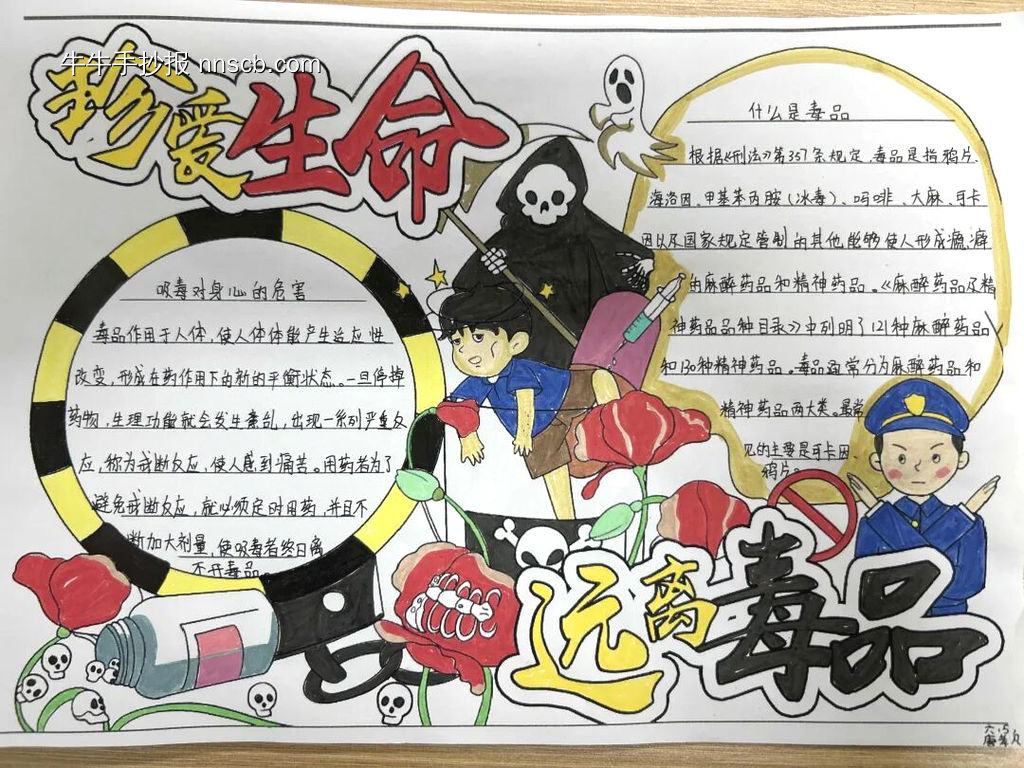 牛牛手抄报 nnscb.com
珍爱生命
什么是毒品
根据《刑法》第357条规定,毒品是指鸦片、
海洛因、甲基苯丙胺(冰毒)、吗啡、大麻、可卡
因以及国家规定管制的其他能够使人形成瘾癖
的麻醉药品和精神药品。《麻醉药品及精
神药品品种目录》中列明了121种麻醉药品
和130种精神药品。毒品通常分为麻醉药品和
精神药品两大类。最常
见的主要是可卡因
鸦片。
吸毒对身心的危害
毒品作用于人体,使人体体能产生适应性
改变,形成在药作用下的新的平衡状态。一旦停掉
药物,生理功能就会发生紊乱,出现一系列严重反
应,称为戒断反应,使人感到痛苦。用药者为了
避免戒断反应,就必须定时用药,并且不
断加大剂量,使吸毒者终日离
不开毒品。
远离毒品
六.5